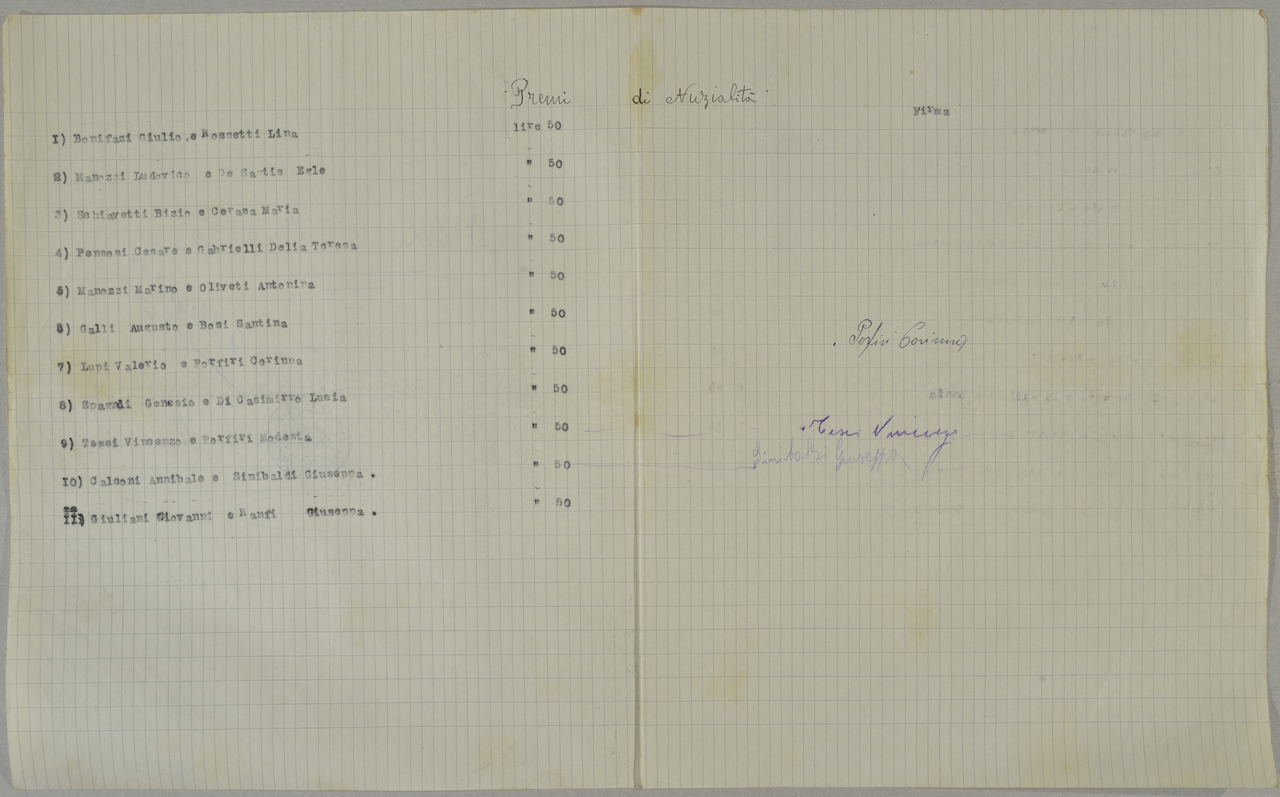 Premi di Nuzialità
Firma
I) Bonifazi Giulio e Rossetti Lina lire 50
2) Manozzi Ludovico e De Santis Egle " 50
3) Schiavetti Bizio e Cerasa Maria " 50
4) Pensosi Cesare e Gabrielli Delia Teresa " 50
5) Manozzi Marino e Oliveti Antonina " 50
5) Galli Augusto e Bosi Santina " 50
7) Lupi Valerio e Porfiri Corinna " 50 Porfiri Corinna
8) Genesio e Di Casimirro Lucia " 50
9) Tosei Vincenzo e Porfiri Modesta " 50 Vincenzo
IO) Calconi Annibale e Sinibaldi Giuseppa. " 50 Sinibaldi Giuseppa
II) Giuliani Giovanni e Ranfi Giuseppa. " 50